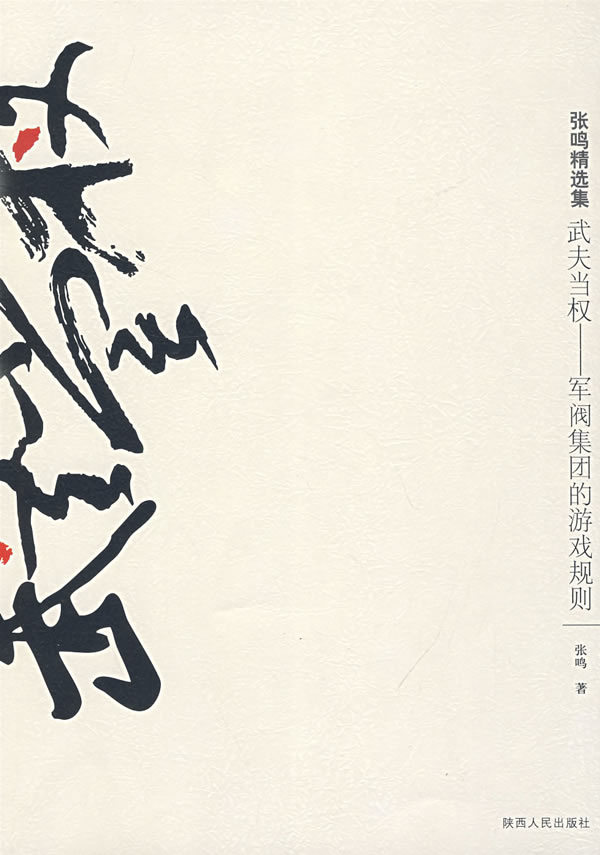 张鸣精选集 武夫当权——军阀集团的游戏规则
张鸣 著
陕西人民出版社